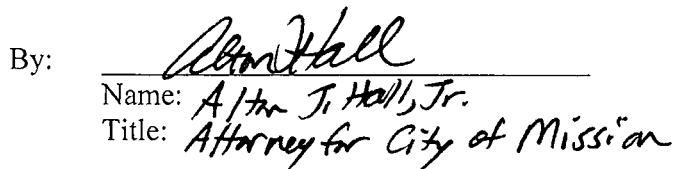 By: Alton J Hall
Name: Alton J. Hall, Jr.
Title: Attorney for City of Mission